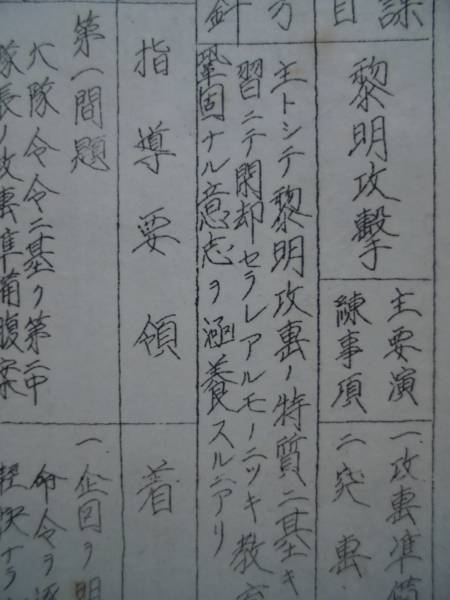 課目
黎明攻撃
主要演練事項
一、攻撃準備
二、突撃
方針
主トシテ黎明攻撃ノ特質ニ基キ
習ニテ閑却セラレアルモノニツキ教育
鞏固ナル意志ヲ涵養スルニアリ
指導要領
着
第一問題
大隊命令ニ基ク第二中
隊長ノ攻撃準備腹案
一、企図ヲ明
命令ヲ
軽快ナラ